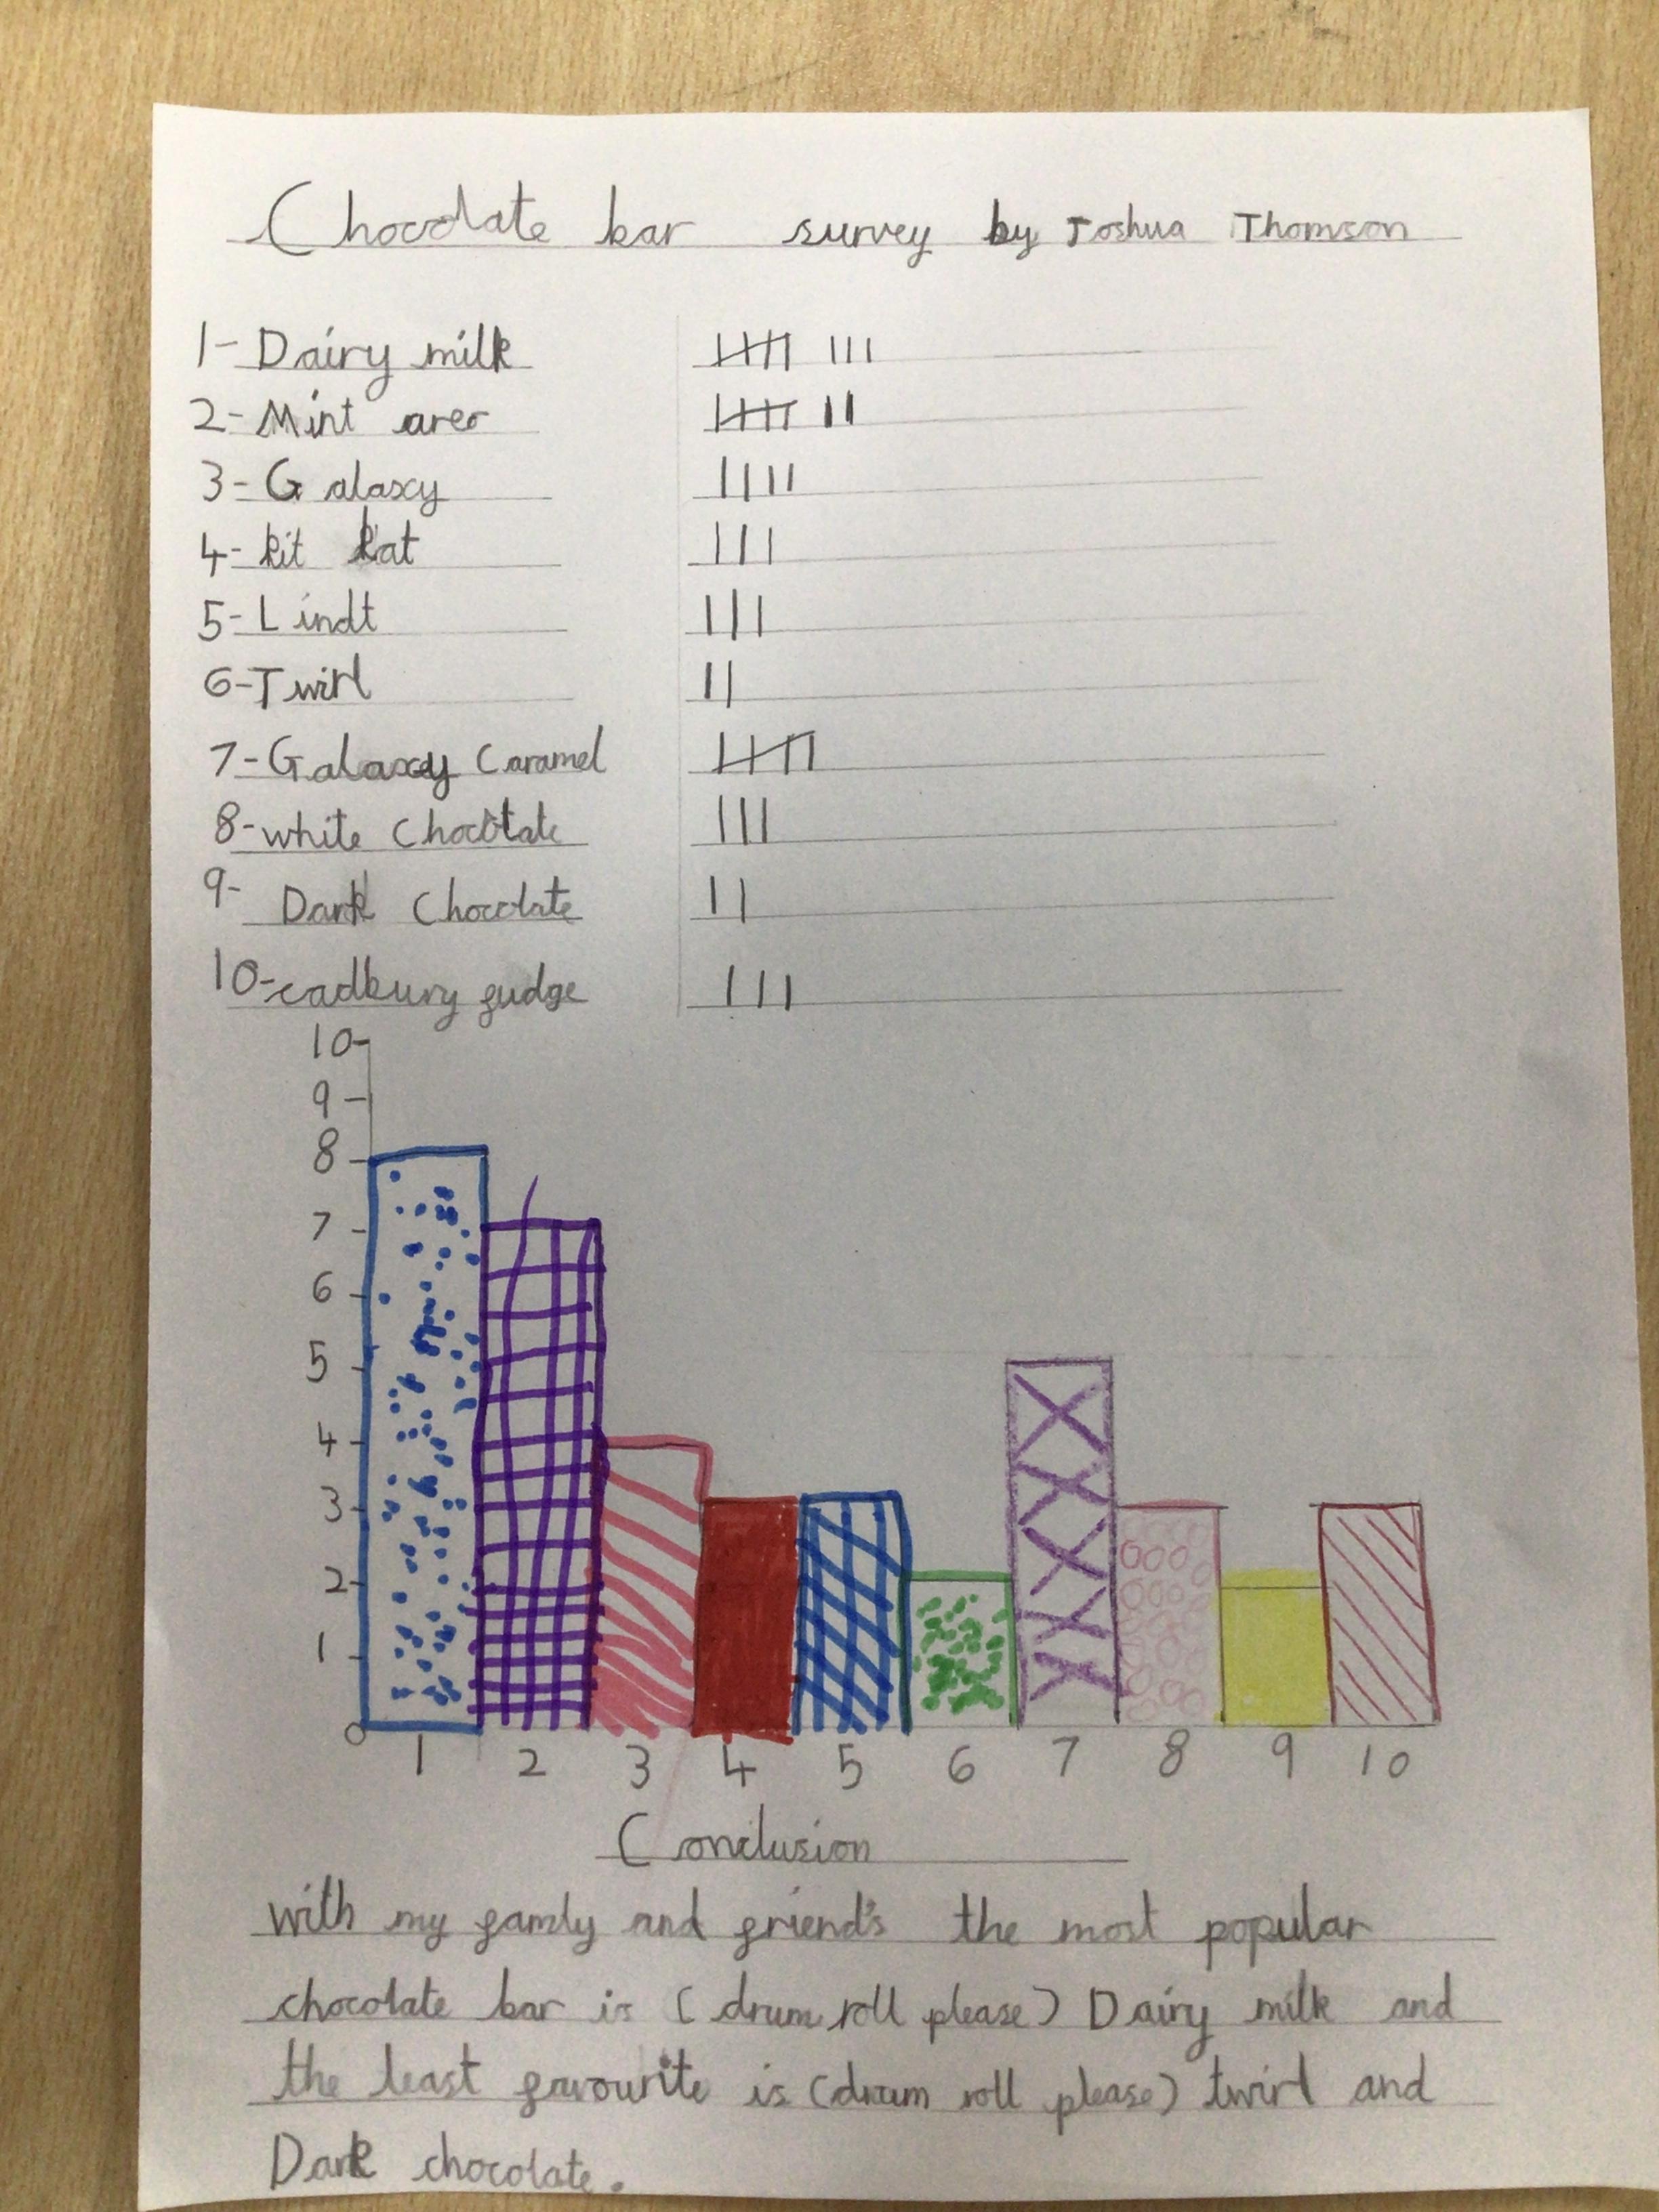 Chocolate bar survey by Joshua Thomson
1- Dairy milk
2- Mint areo
3- Galaxy
4- kit kat
5- Lindt
6- Twirl
7- Galaxy Caramel
8- white Chocolate
9- Dark Chocolate
10- cadbury fudge
10
9
8
7
6
5
4
3
2
1
0
1 2 3 4 5 6 7 8 9 10
Conclusion
with my family and friend's the most popular
chocolate bar is (drum roll please) Dairy milk and
the least favourite is (drum roll please) twirl and
Dark chocolate.